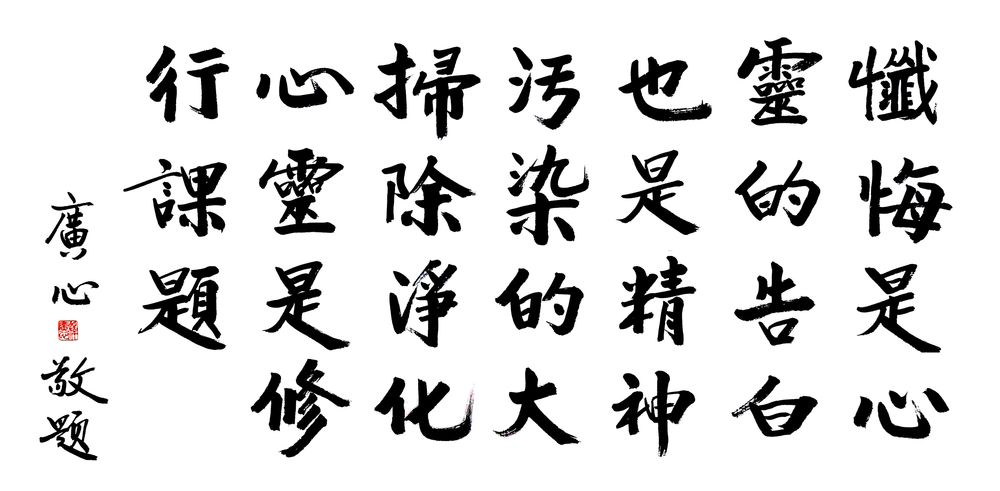 懺悔是心
靈的告白
也是精神
污染的大
掃除淨化
心靈是修
行課題
廣心敬題